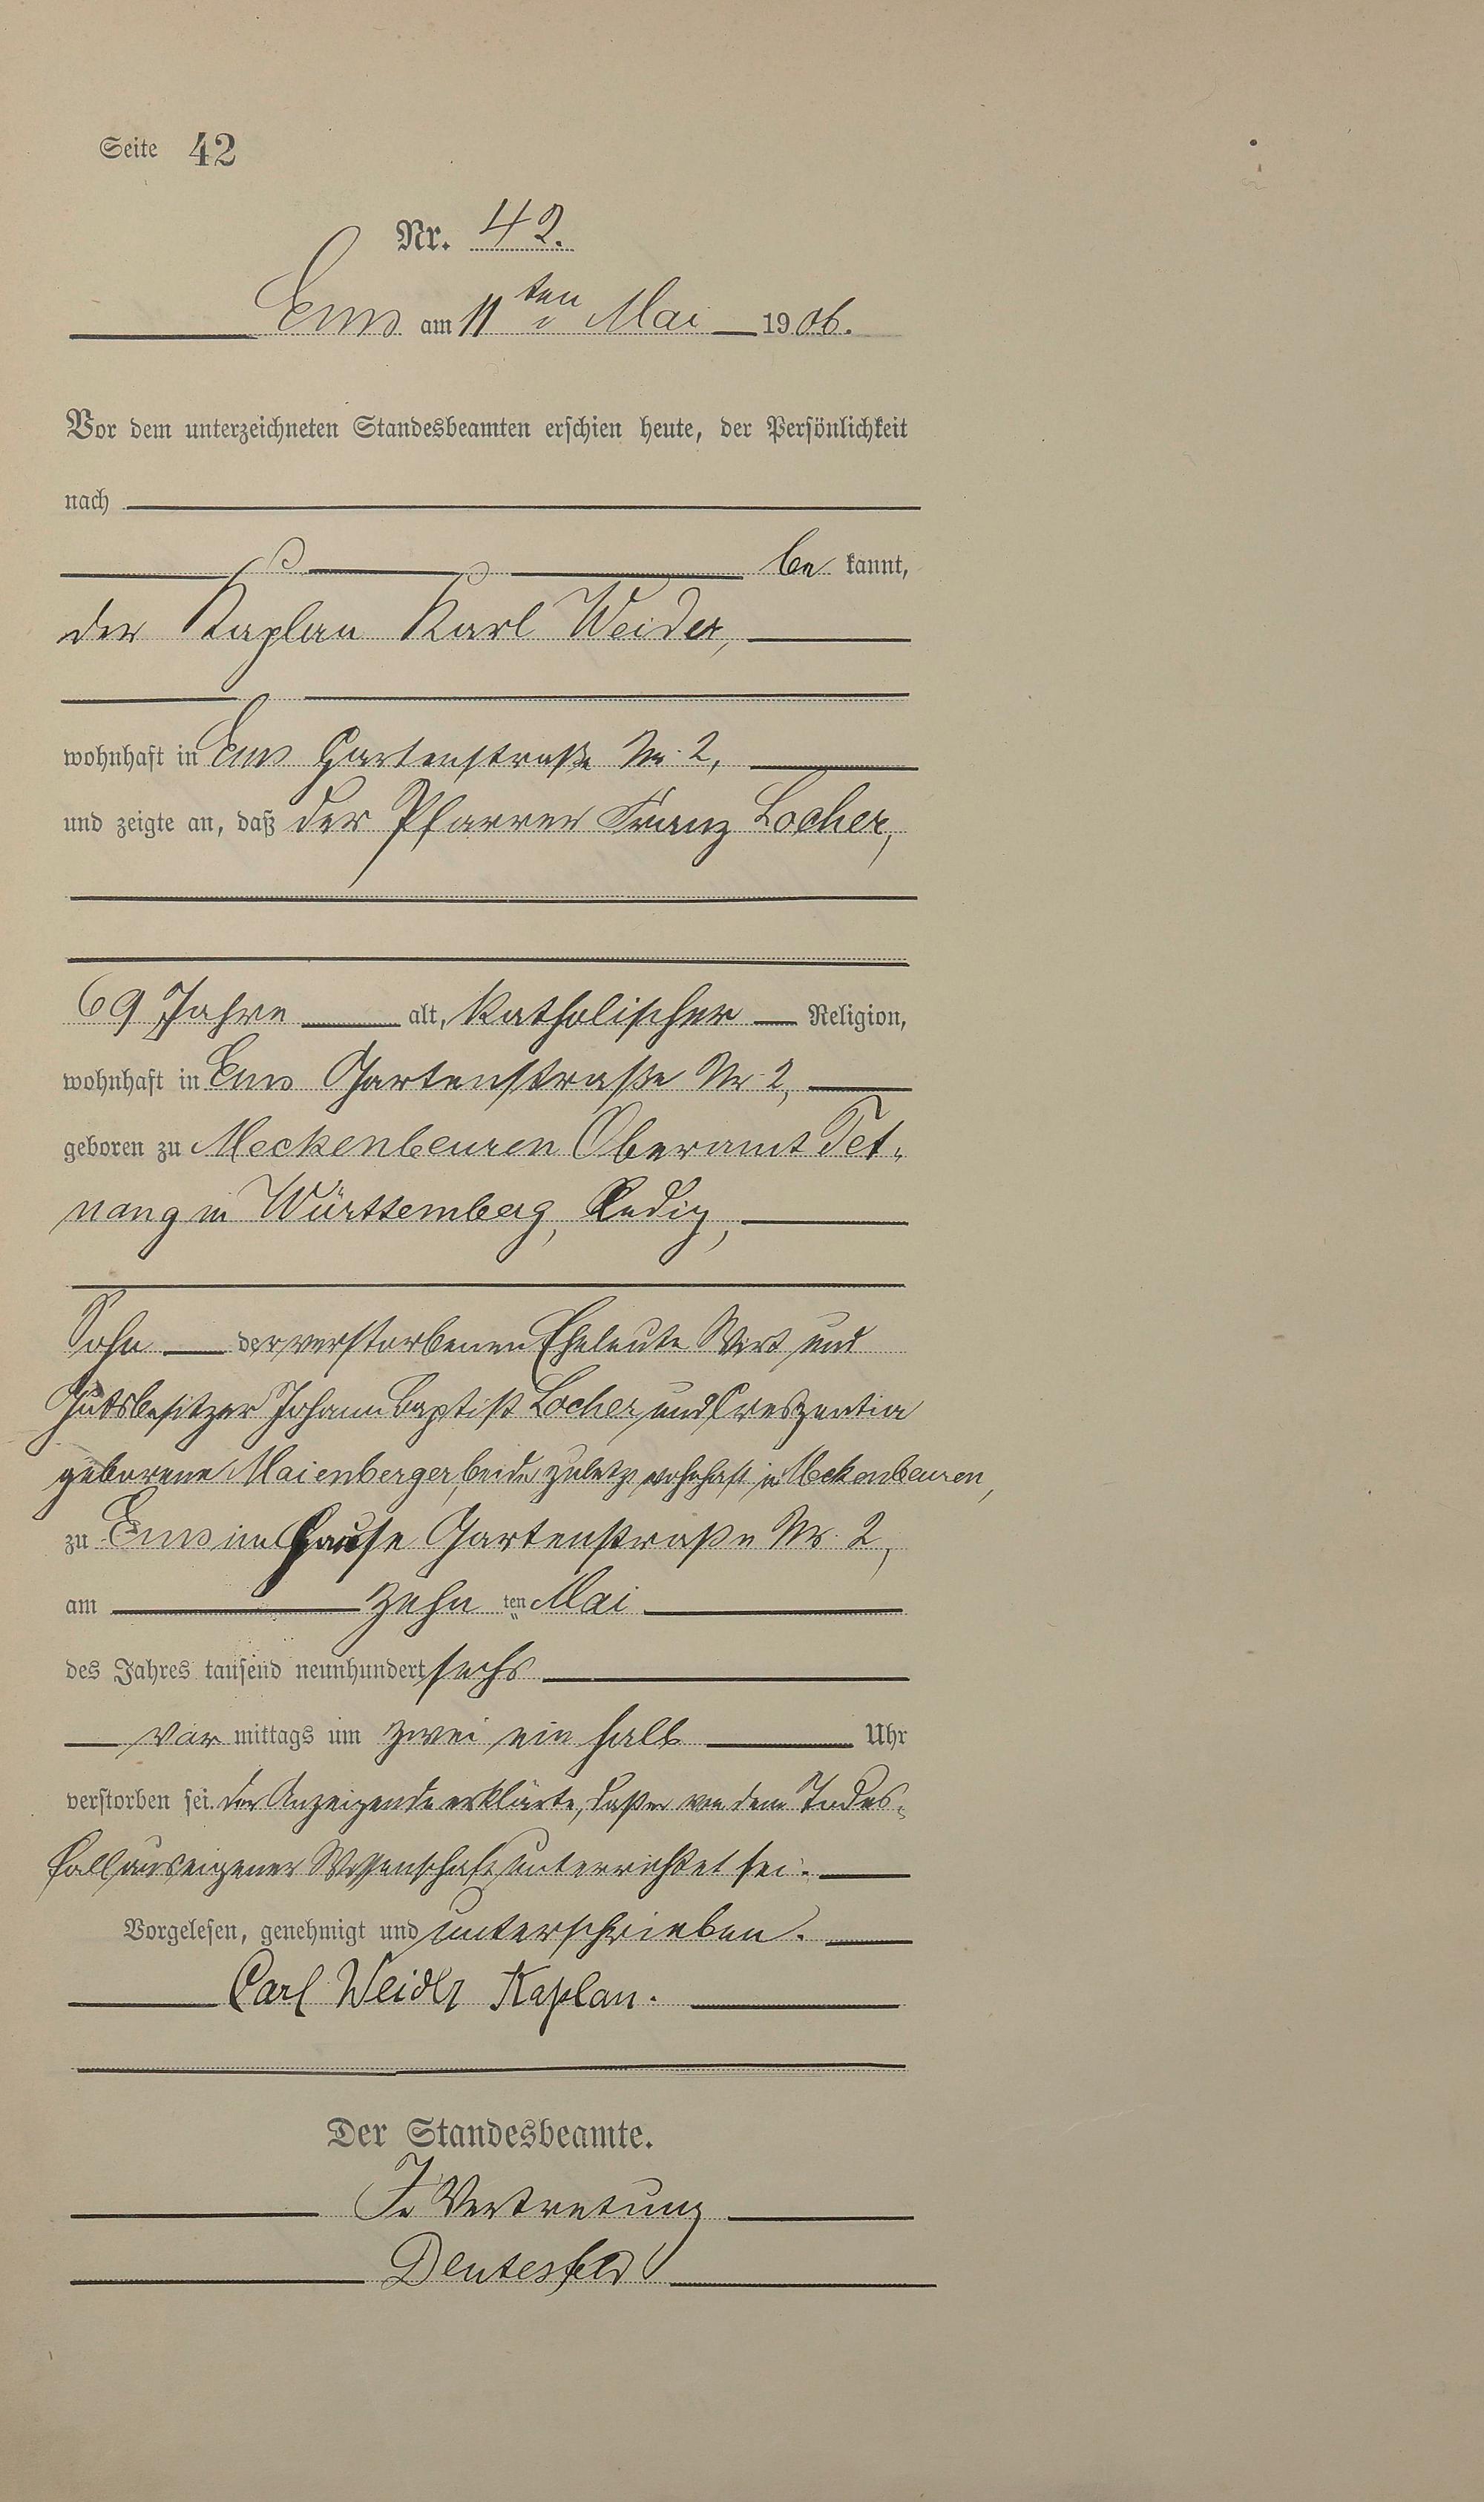 Seite 42
Nr. 42.
Ems am 11ten Mai 1906.
Vor dem unterzeichneten Standesbeamten erschien heute, der Persönlichkeit
nach
be kannt,
der Kaplan Karl Weider,
wohnhaft in Ems Gartenstraße Nr. 2,
und zeigte an, daß der Pfarrer Franz Locher,
69 Jahre alt, katholischer Religion,
wohnhaft in Ems Gartenstraße Nr. 2,
geboren zu Meckenbeuren Oberamt Tet-
nang in Württemberg, Ledig,
Sohn der verstorbenen Eheleute Wirt und
Gutsbesitzer Johann Baptist Locher und Creszentia
geborene Maienberger, beide zuletzt wohnhaft in Meckenbeuren,
zu Ems im Hause Gartenstraße Nr. 2,
am zehn ten Mai
des Jahres tausend neunhundert sechs
vor mittags um zwei ein halb Uhr
verstorben sei. Der Anzeigende erklärte, daß er von dem Todes-
fall aus eigener Wissenschaft unterrichtet sei.
Vorgelesen, genehmigt und unterschrieben.
Carl Weider Kaplan.
Der Standesbeamte.
In Vertretung